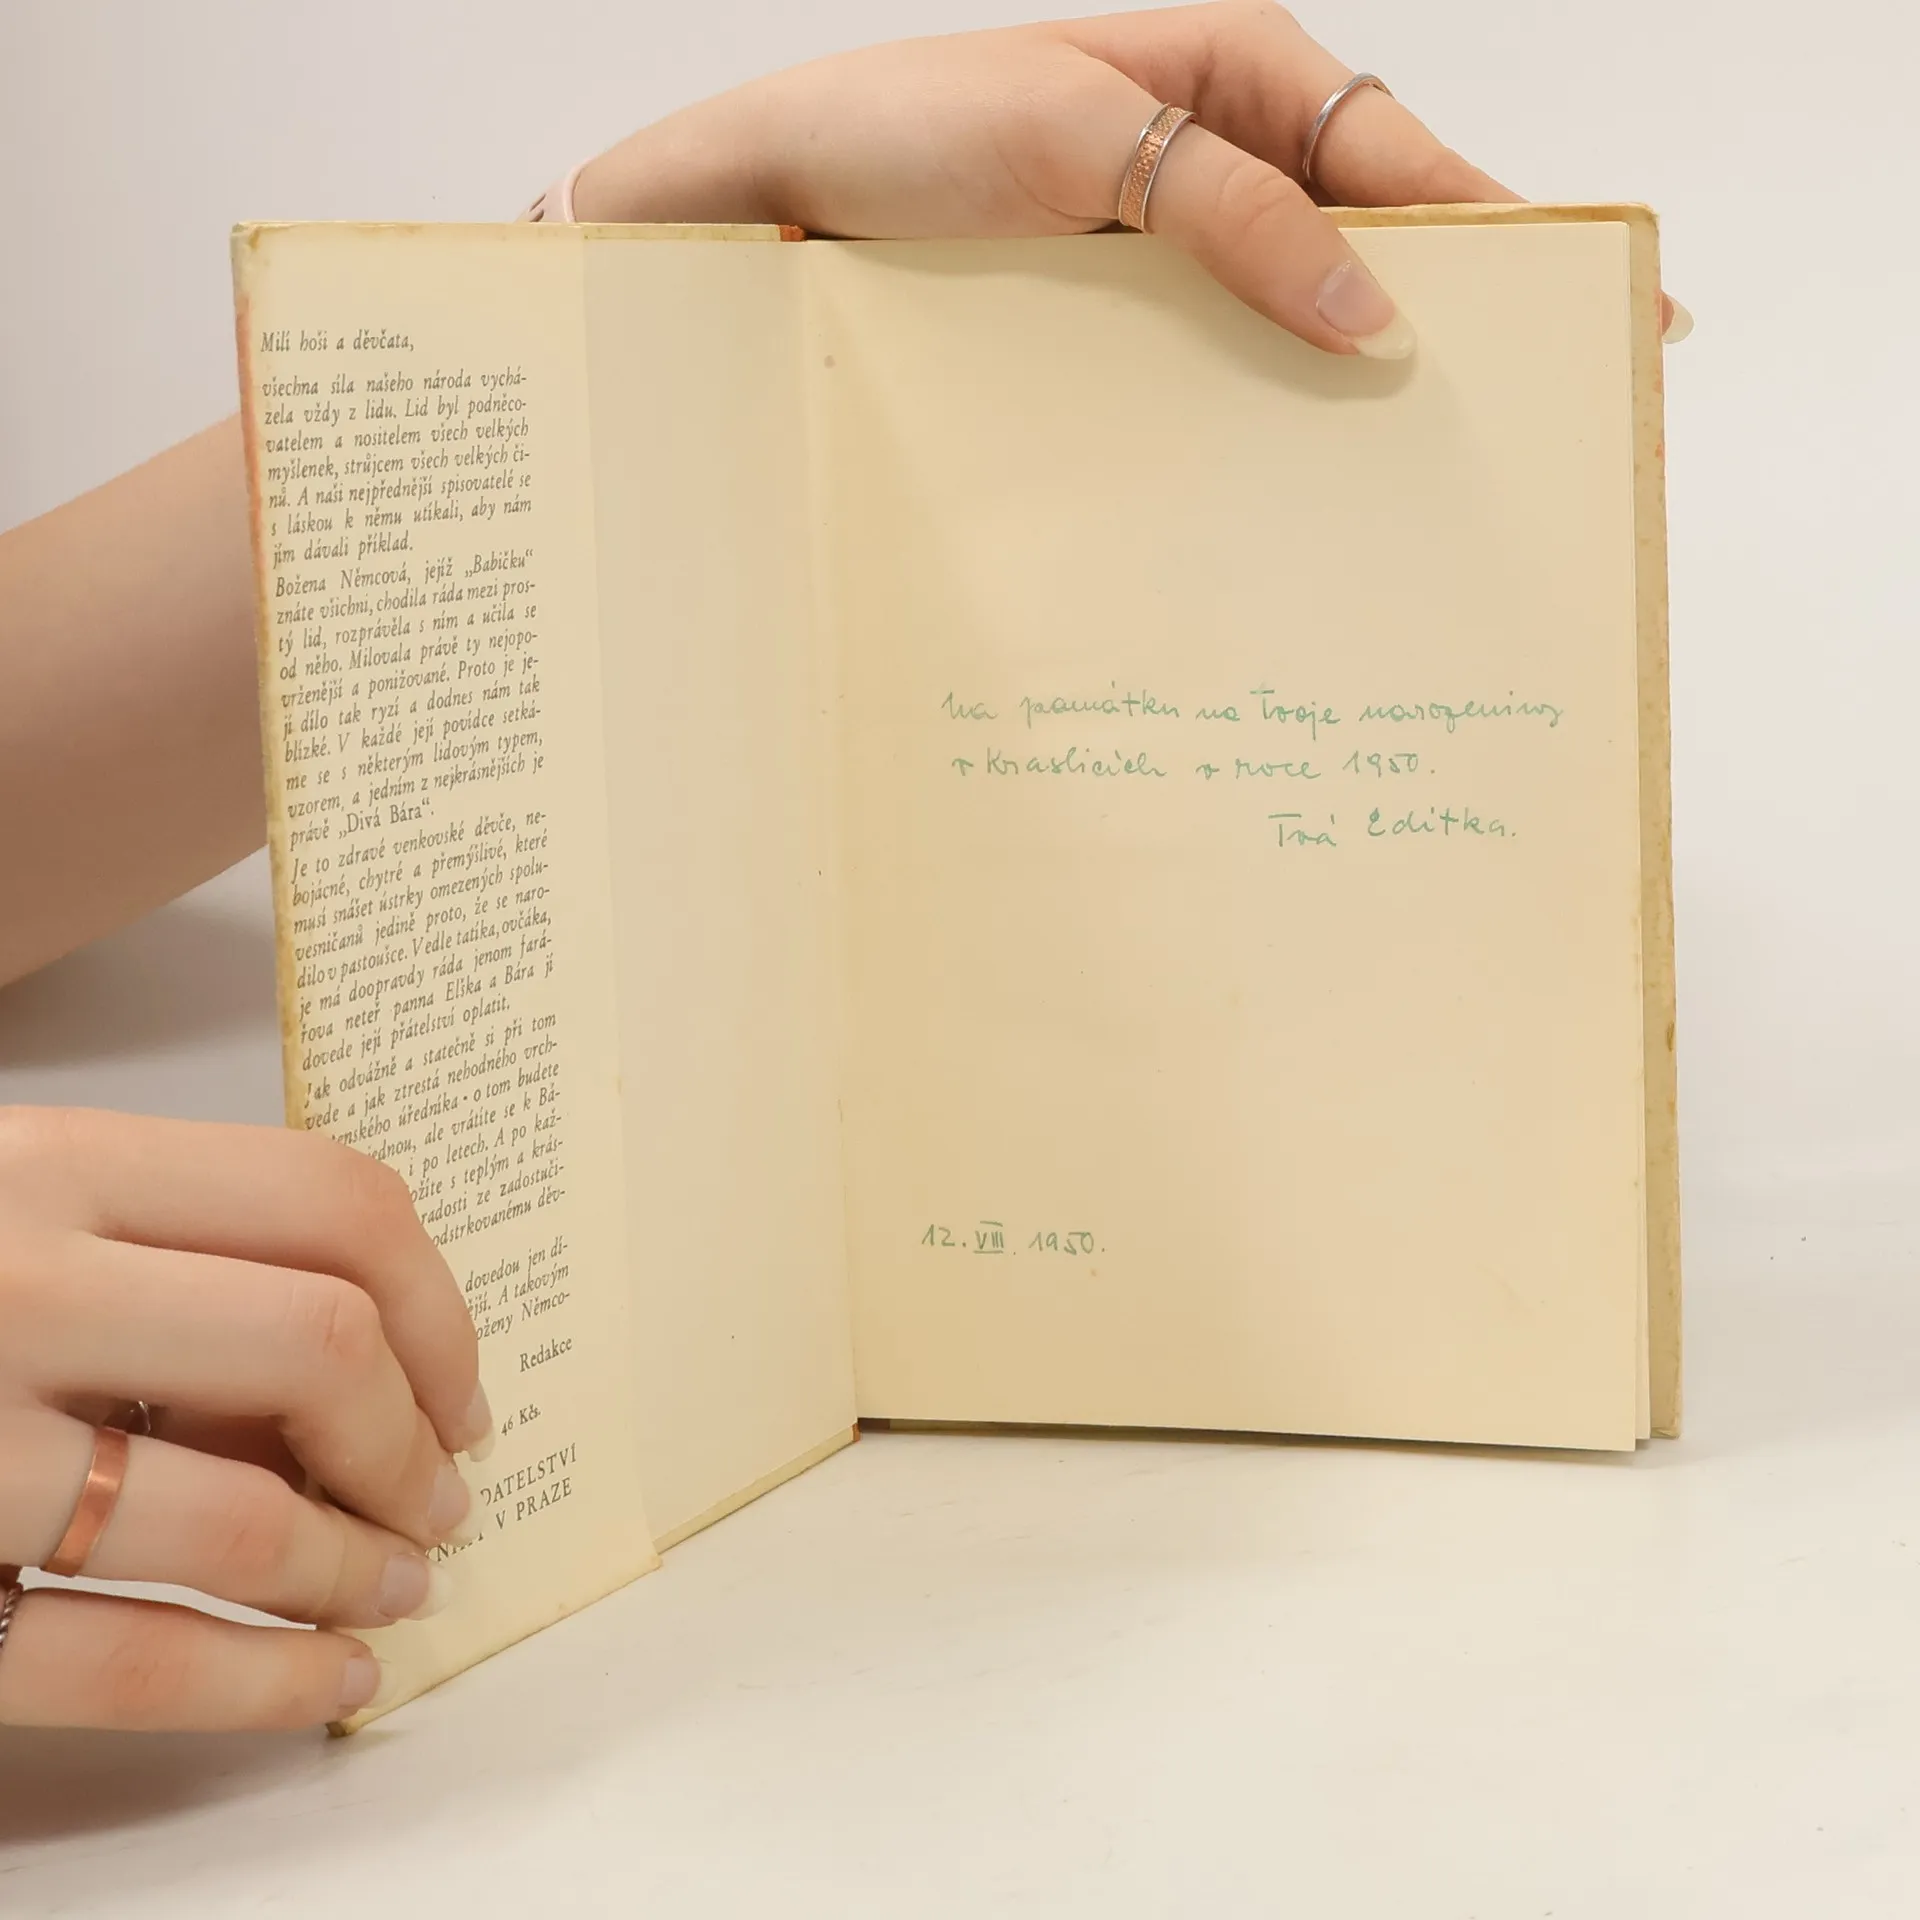 Milí hoši a děvčata,
všechna síla našeho národa vychá-
zela vždy z lidu. Lid byl podněco-
vatelem a nositelem všech velkých
myšlenek, strůjcem všech velkých či-
nů. A naši nejpřednější spisovatelé se
s láskou k němu utíkali, aby nám
jím dávali příklad.
Božena Němcová, jejíž „Babičku“
znáte všichni, chodila ráda mezi pros-
tý lid, rozprávěla s ním a učila se
od něho. Milovala právě ty nejopo-
vrženější a ponižované. Proto je je-
jí dílo tak ryzí a dodnes nám tak
blízké. V každé její povídce setká-
me se s některým lidovým typem,
vzorem, a jedním z nejkrásnějších je
právě „Divá Bára“.
Je to zdravé venkovské děvče, ne-
bojácné, chytré a přemýšlivé, které
musí snášet ústrky omezených spolu-
vesničanů jedině proto, že se naro-
dilo v pastoušce. Vedle tatíka, ovčáka,
je má doopravdy ráda jenom fará-
řova neteř panna Elška a Bára jí
dovede její přátelství oplatit.
Jak odvážně a statečně si při tom
vede a jak ztrestá nehodného vrch-
tenského úředníka - o tom budete
jednou, ale vrátíte se k Bá-
i po letech. A po kaž-
ožíte s teplým a krás-
radosti ze zadostuči-
odstrkovanému děv-
dovedou jen dí-
ější. A takovým
oženy Němco-
Redakce
46 Kčs.
DATELSTVÍ
V PRAZE
Na památku na Tvoje narozeniny
v Kraslicích v roce 1950.
Tvá Editka.
12. VIII. 1950.